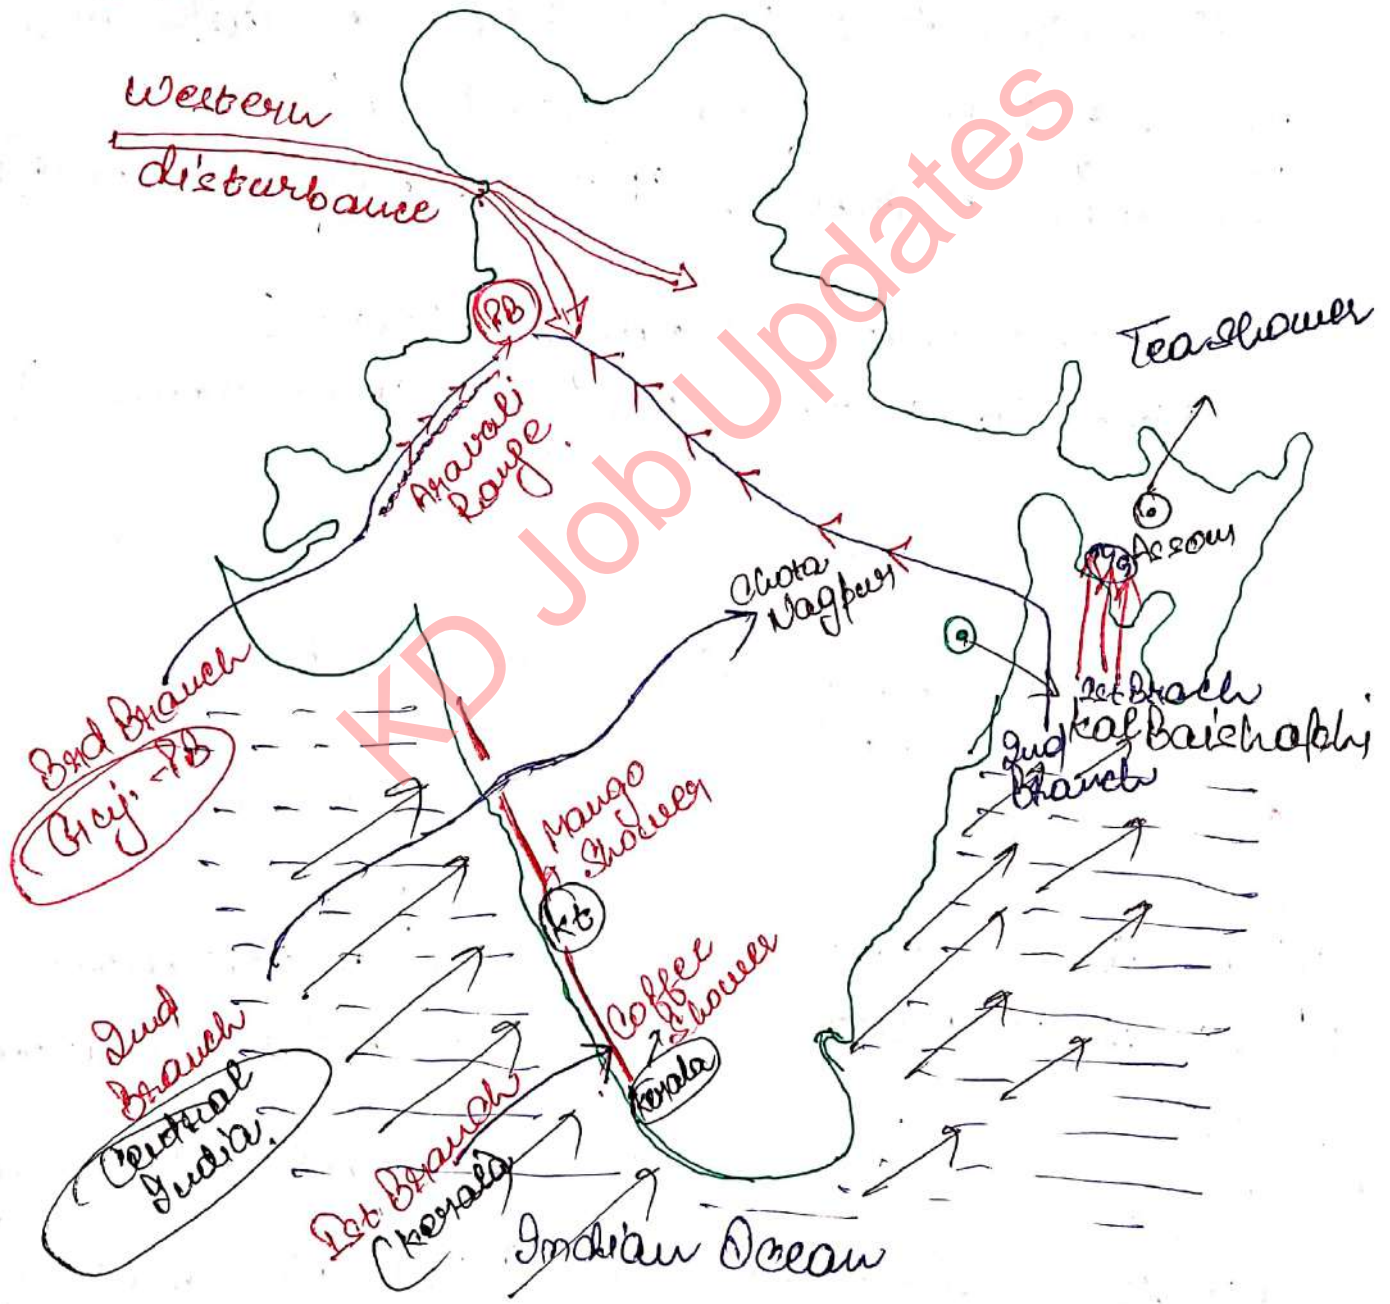 Western
disturbance
PB
Tea Shower
Aravali
Range.
Assam
Chota
Nagpur
1st Branch
Kal Baishakhi
2nd
Branch
3rd Branch
Guj. - PB
Mango
Shower
Kt
Coffee
Shower
Kerala
2nd
Branch
Central
India.
Ist Branch
(Kerala
Indian Ocean
KD Job Updates